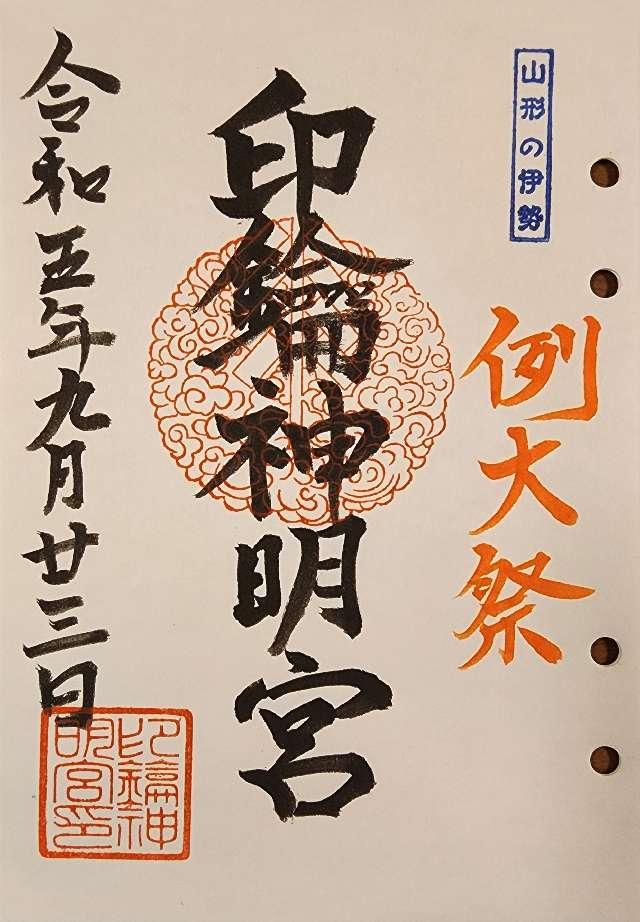 山形の伊勢
例大祭
印鑰神明宮
令和五年九月廿三日
印鑰神
明宮印